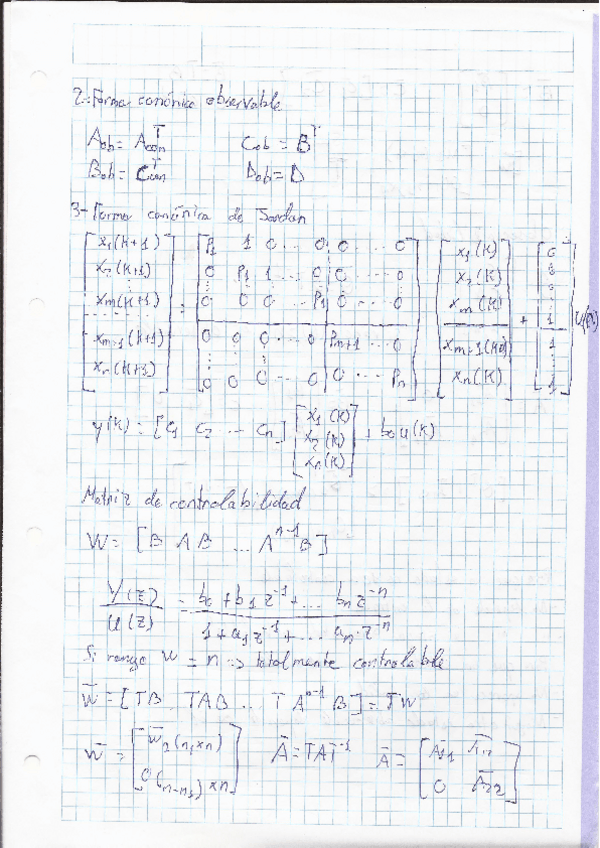 2-Forma canónica observable
Aob = Acon^T    Cob = B^T
Bob = Ccon^T    Dob = D
3-Forma canónica de Jordan
[x1(k+1)]   [P1 1 0 ... 0 | 0 ... 0] [x1(k)]   [0]
[x2(k+1)]   [0 P1 1 ... 0 | 0 ... 0] [x2(k)]   [0]
[xm(k+1)] = [0 0 0 ... P1 | 0 ... 0] [xm(k)] + [1] u(k)
[xm+1(k+1)]   [0 0 0 ... 0 | Pm+1 ... 0] [xm+1(k)]   [1]
[xn(k+1)]   [0 0 0 ... 0 | 0 ... Pn] [xn(k)]   [1]
y(k) = [C1 C2 ... Cn] [x1(k) x2(k) xn(k)] + b0 u(k)
Matriz de controlabilidad
W = [B AB ... A^n-1 B]
Y(z)/U(z) = b0 + b1 z^-1 + ... bn z^-n / 1 + a1 z^-1 + ... an · z^-n
Si rango W = n => totalmente controlable
W̄ = [TB TAB ... T A^n-1 B] = TW
W̄ = [W̄2(n1×n) 0(n-n1)×n]    Ā = TAT^-1    Ā = [Ā11 Ā12 0 Ā22]